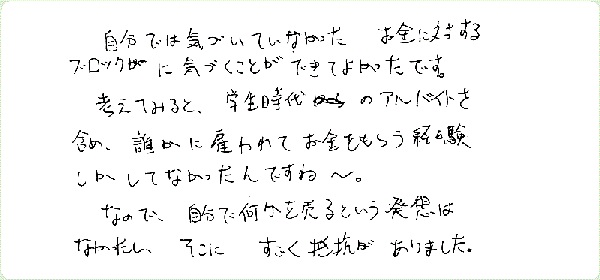 自分では気づいていなかった お金に対する
ブロックに気づくことができてよかったです。
考えてみると、学生時代のアルバイトを
含め、誰かに雇われてお金をもらう経験
しかしてなかったんですね〜。
なので、自分で何かを売るという発想は
なかったし、そこに すごく抵抗が ありました。